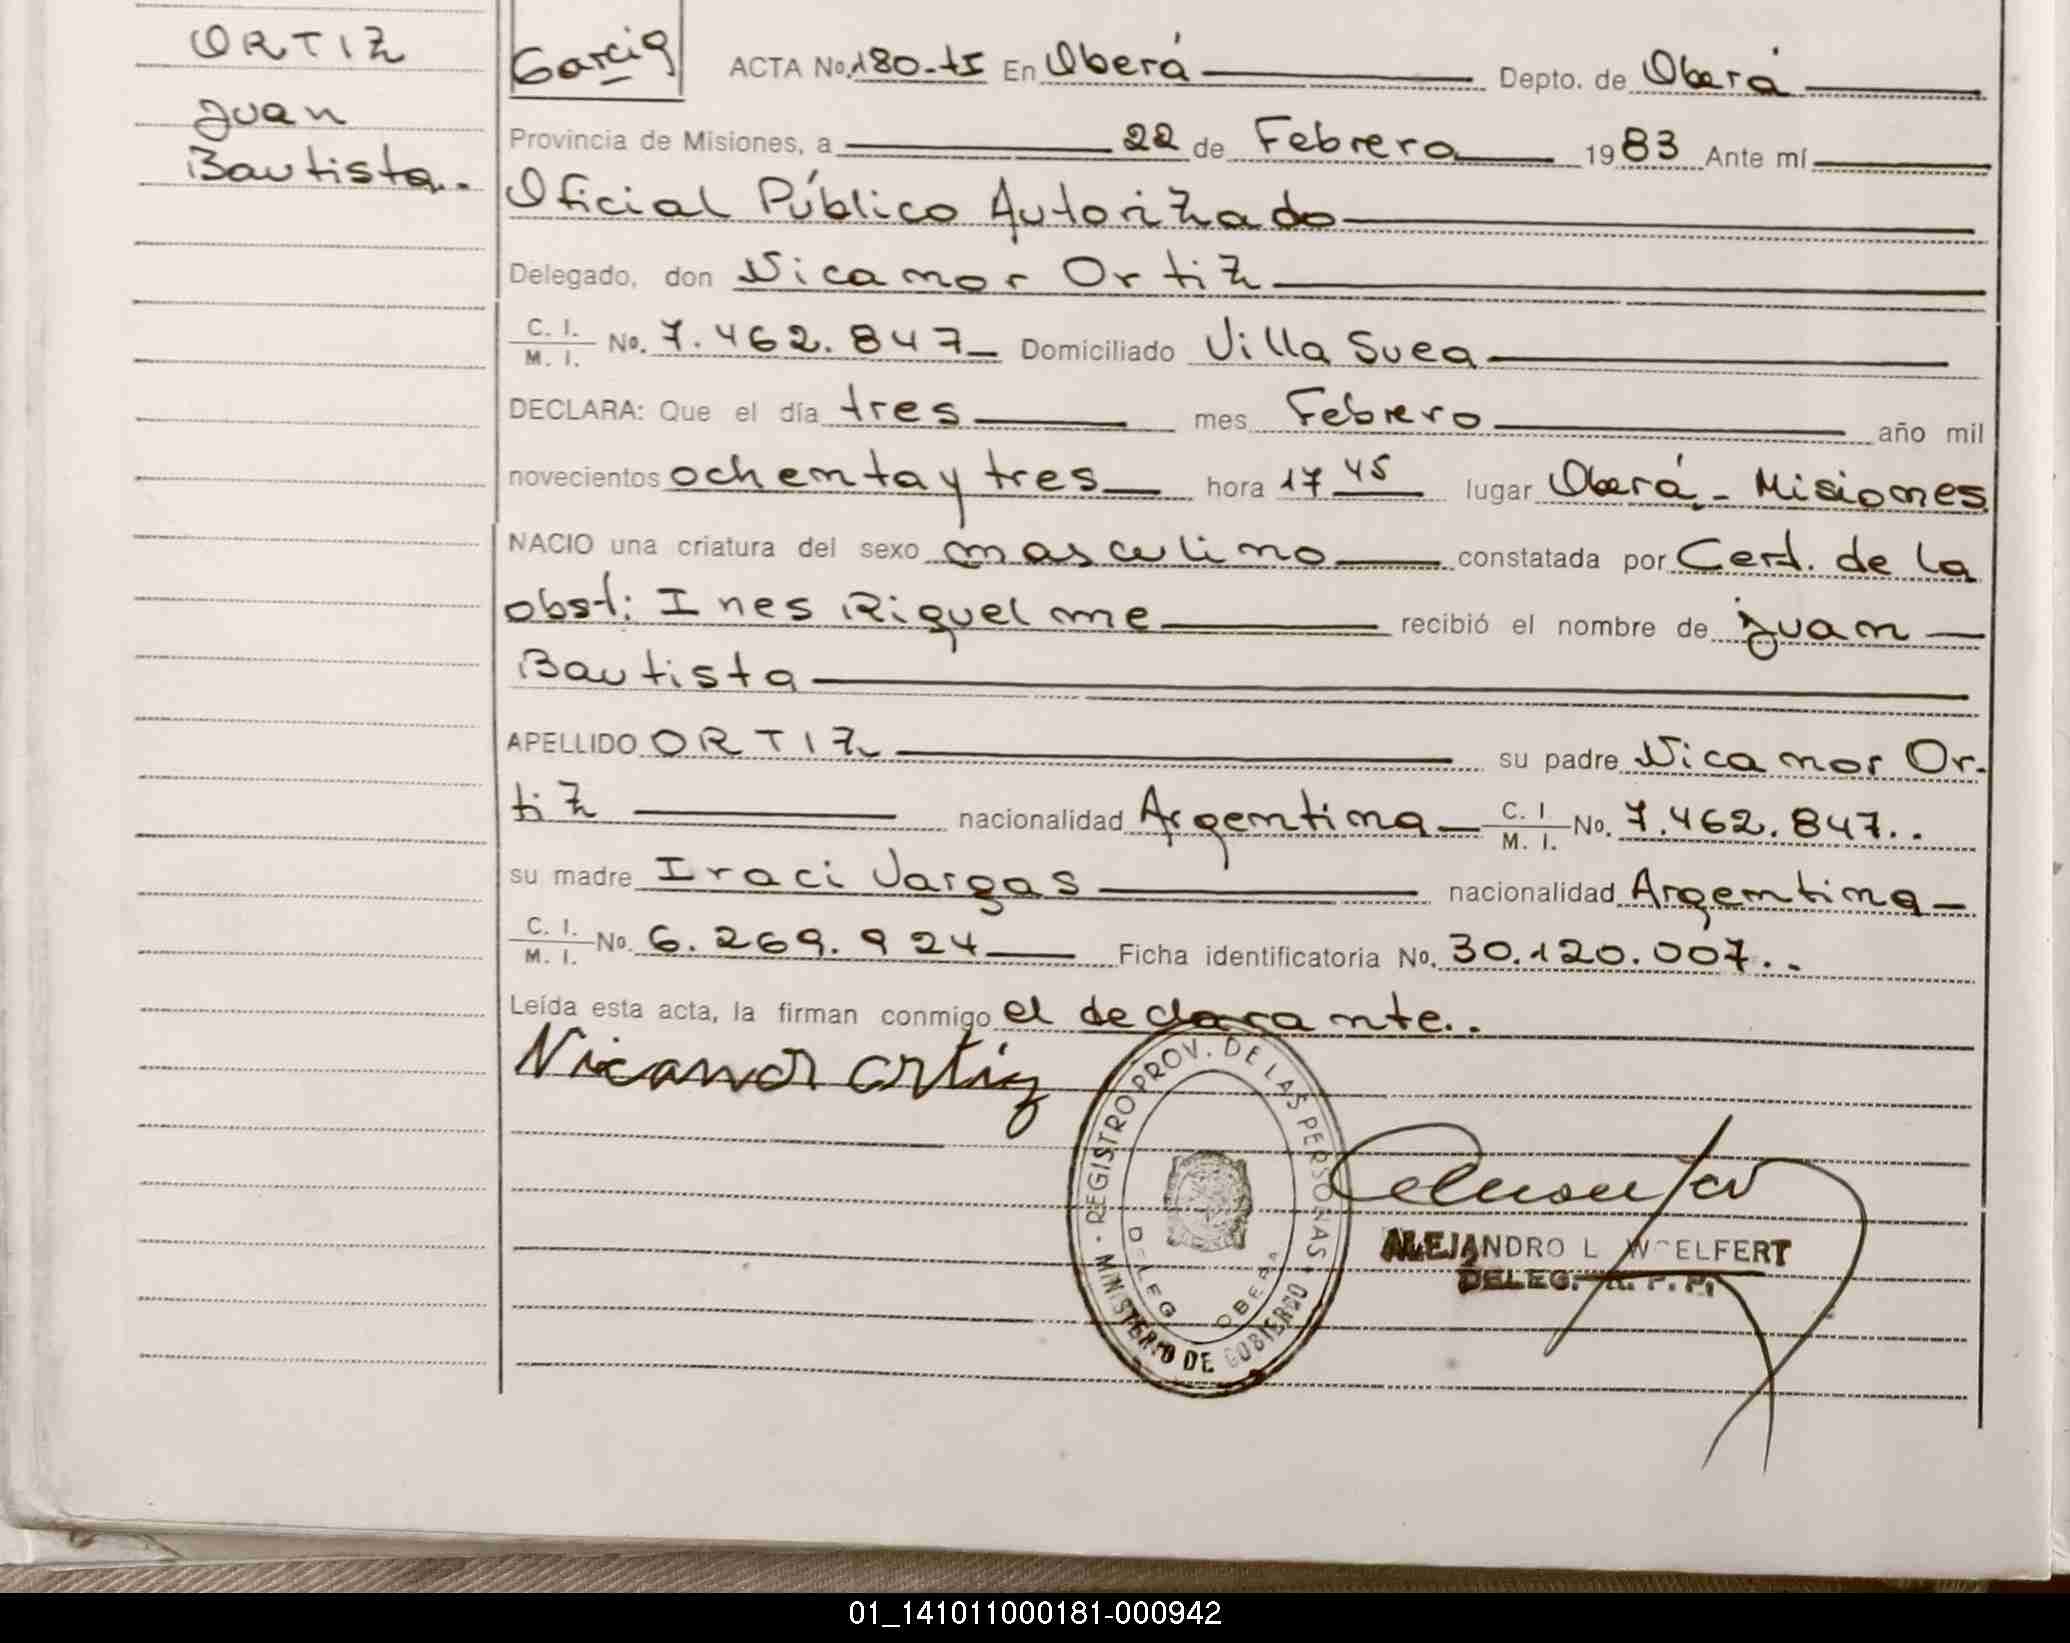 ORTIZ
Juan
Bautista..
Garcia
ACTA No. 180-tI En Oberá Depto. de Oberá
Provincia de Misiones, a 22 de Febrero 1983 Ante mí
Oficial Público Autorizado
Delegado, don Nicanor Ortiz
C. I.
M. I. No. 7.462.847 Domiciliado Villa Svea
DECLARA: Que el día tres mes Febrero año mil
novecientos ochenta y tres hora 17 45 lugar Oberá - Misiones
NACIO una criatura del sexo masculino constatada por Cert. de la
obst: Ines Riquelme recibió el nombre de Juan
Bautista
APELLIDO ORTIZ su padre Nicanor Or-
tiz nacionalidad Argentina C. I. M. I. No. 7.462.847..
su madre Iraci Vargas nacionalidad Argentina
C. I.
M. I. No. 6.269.924 Ficha identificatoria No. 30.120.007..
Leída esta acta, la firman conmigo el declarante..
Nicanor Ortiz
REGISTRO PROV. DE LAS PERSONAS
MINISTERIO DE GOBIERNO
DELEG OBERA
ALEJANDRO L WOELFERT
DELEG. R. P. P.
01_141011000181-000942